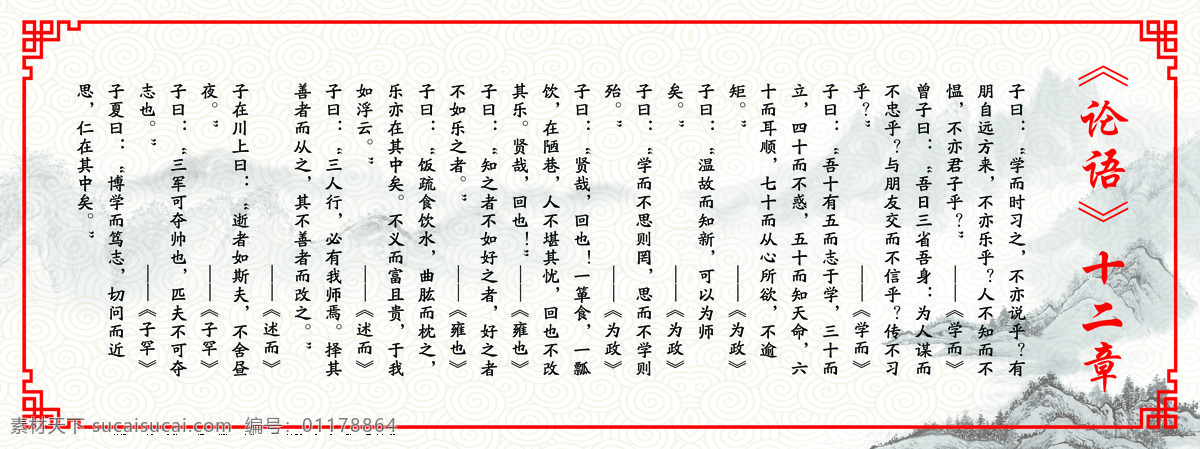 《论语》十二章
子曰：“学而时习之，不亦说乎？有
朋自远方来，不亦乐乎？人不知而不
愠，不亦君子乎？” ——《学而》
曾子曰：“吾日三省吾身：为人谋而
不忠乎？与朋友交而不信乎？传不习
乎？” ——《学而》
子曰：“吾十有五而志于学，三十而
立，四十而不惑，五十而知天命，六
十而耳顺，七十而从心所欲，不逾
矩。” ——《为政》
子曰：“温故而知新，可以为师
矣。” ——《为政》
子曰：“学而不思则罔，思而不学则
殆。” ——《为政》
子曰：“贤哉，回也！一箪食，一瓢
饮，在陋巷，人不堪其忧，回也不改
其乐。贤哉，回也！” ——《雍也》
子曰：“知之者不如好之者，好之者
不如乐之者。” ——《雍也》
子曰：“饭疏食饮水，曲肱而枕之，
乐亦在其中矣。不义而富且贵，于我
如浮云。” ——《述而》
子曰：“三人行，必有我师焉。择其
善者而从之，其不善者而改之。”
——《述而》
子在川上曰：“逝者如斯夫，不舍昼
夜。” ——《子罕》
子曰：“三军可夺帅也，匹夫不可夺
志也。” ——《子罕》
子夏曰：“博学而笃志，切问而近
思，仁在其中矣。”
素材天下 sucaisucai.com 编号：01178864